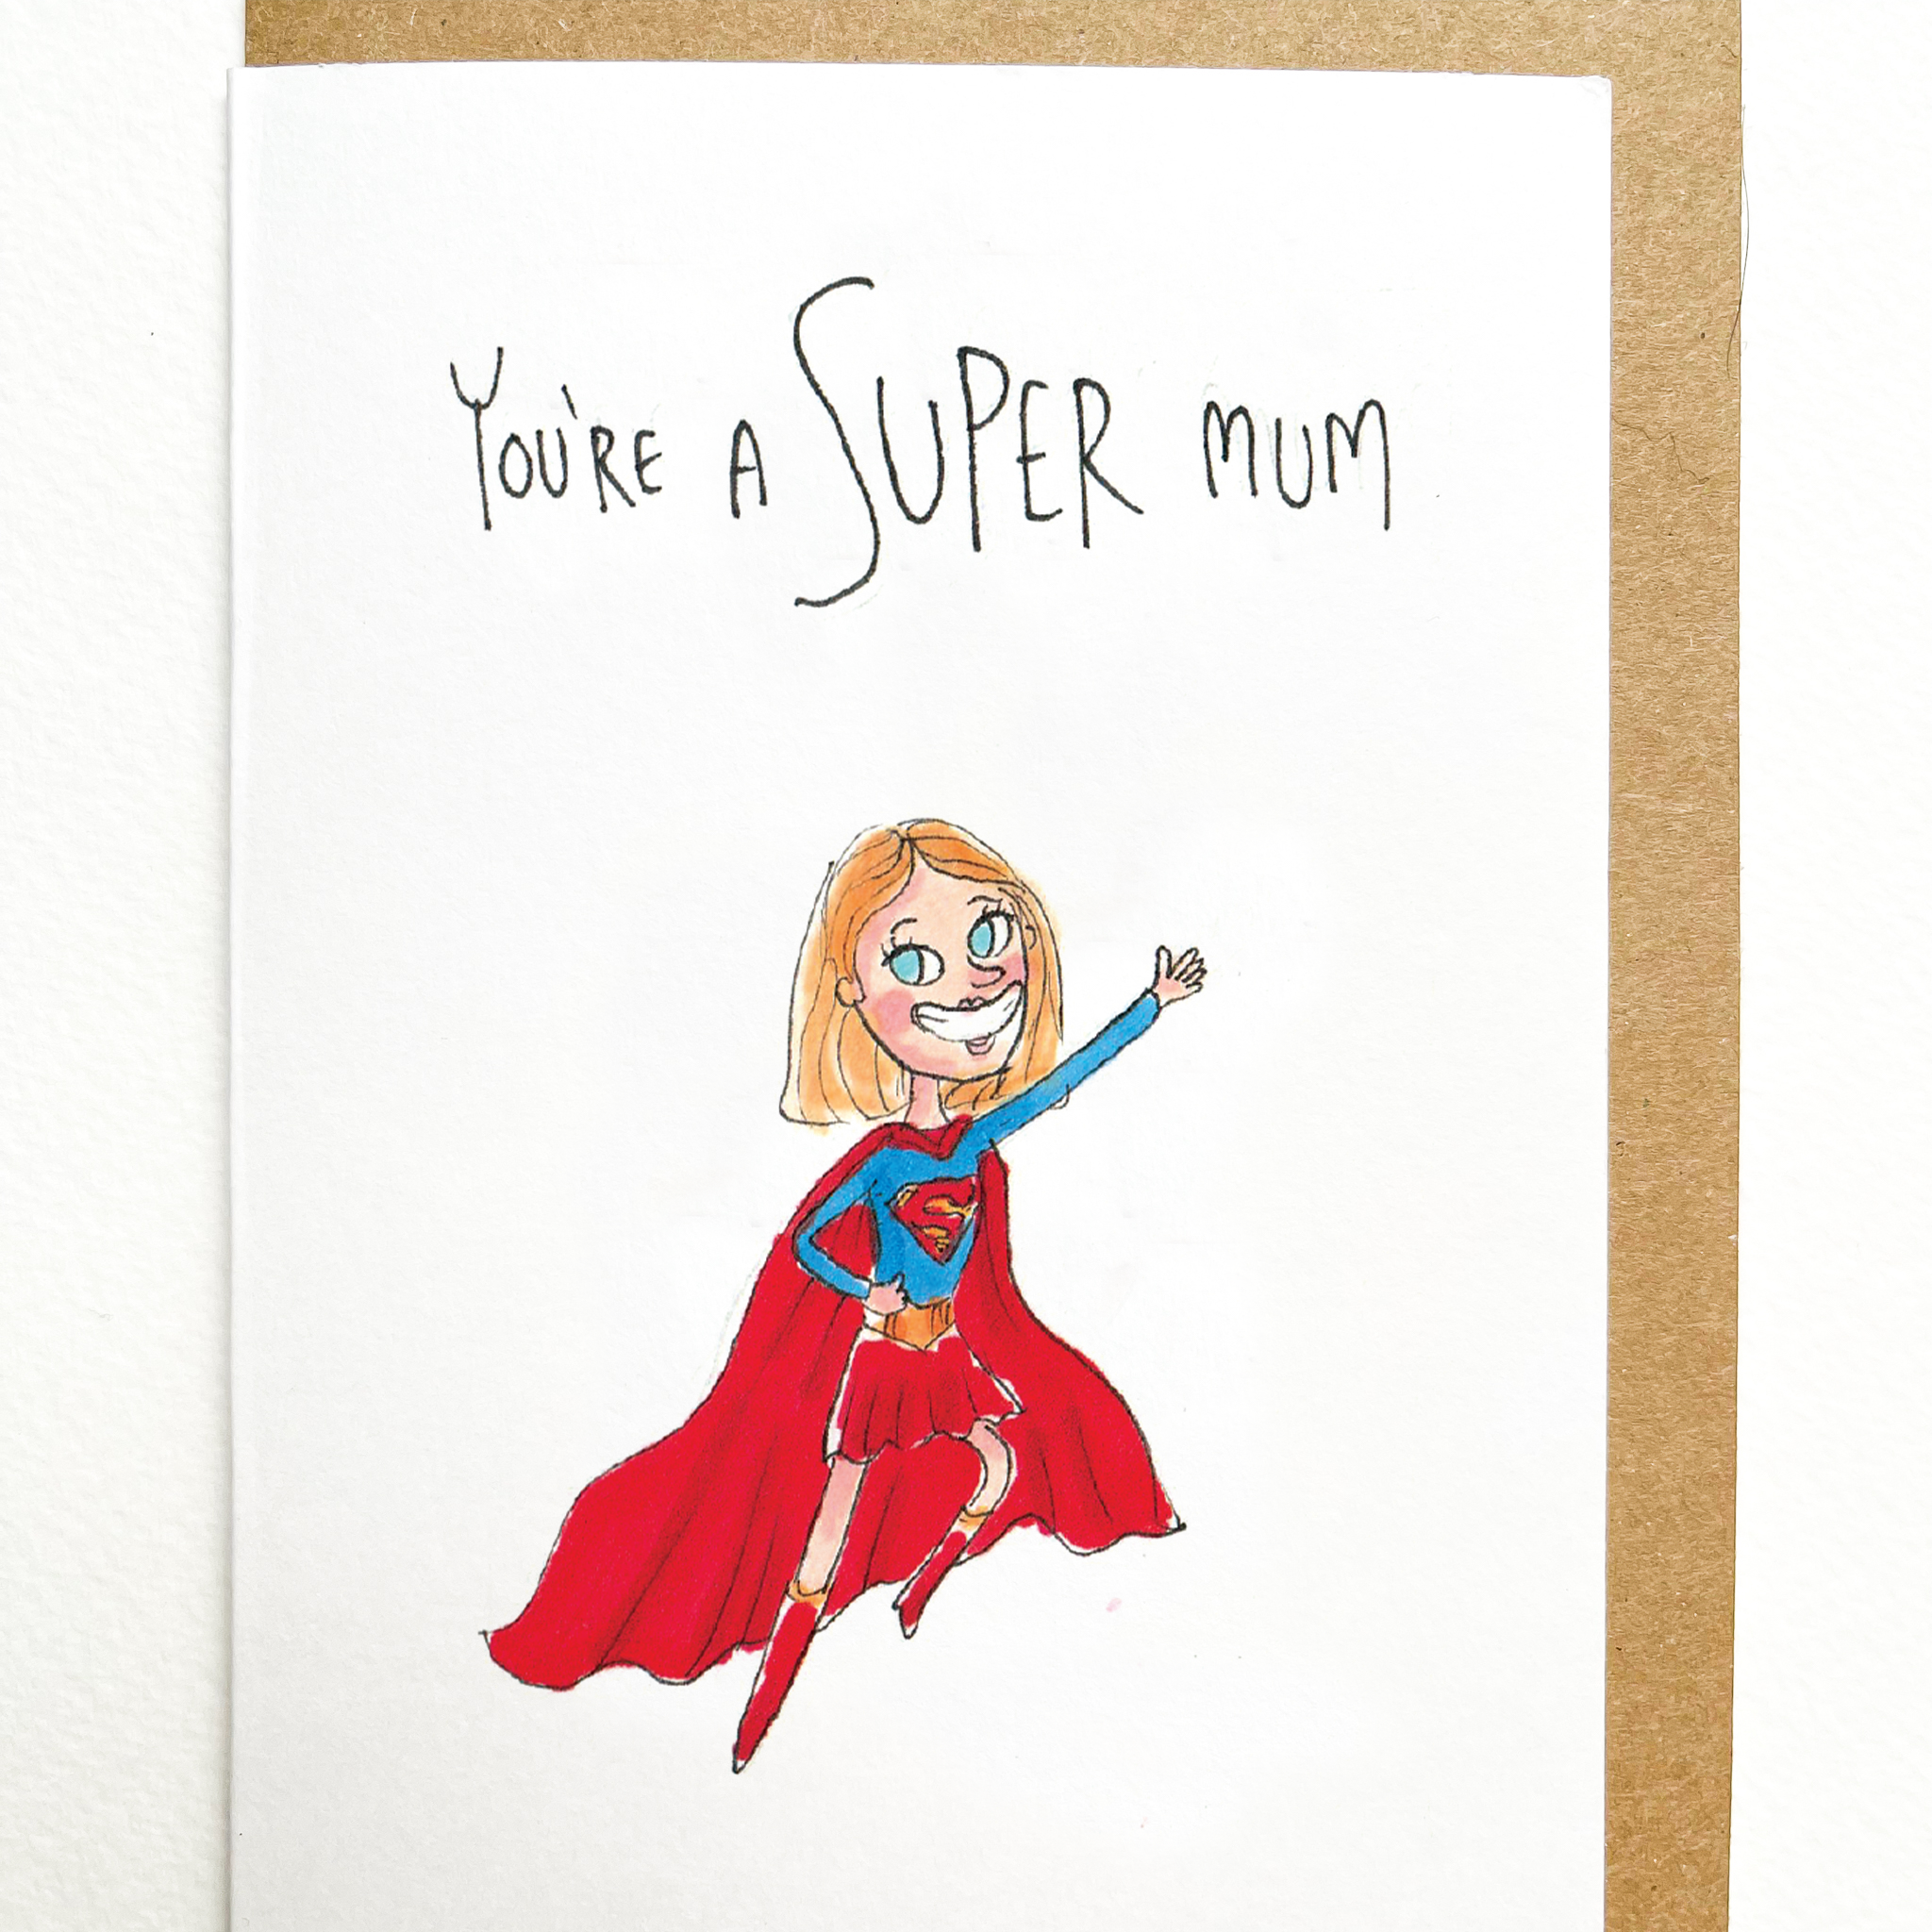 You're a Super mum
S